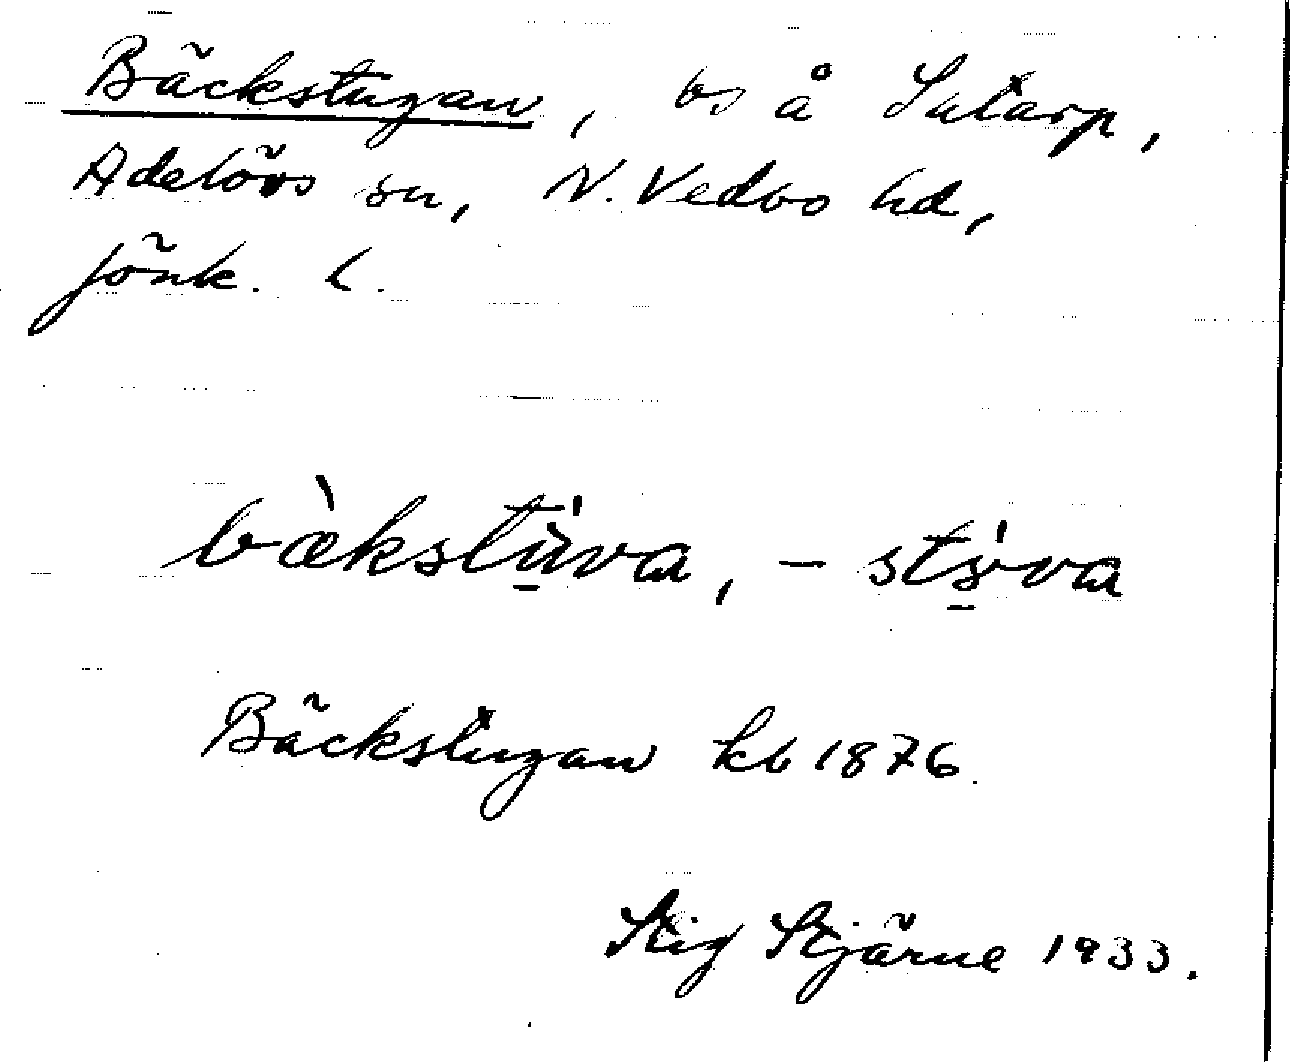 Bäckstugan, bs å Sutarp,
Adelövs sn, N. Vedbo hd,
Jönk. l.
bækstu̱va, - stɤ̱va
Bäckstugan kb 1876.
Stig Stjärne 1933.